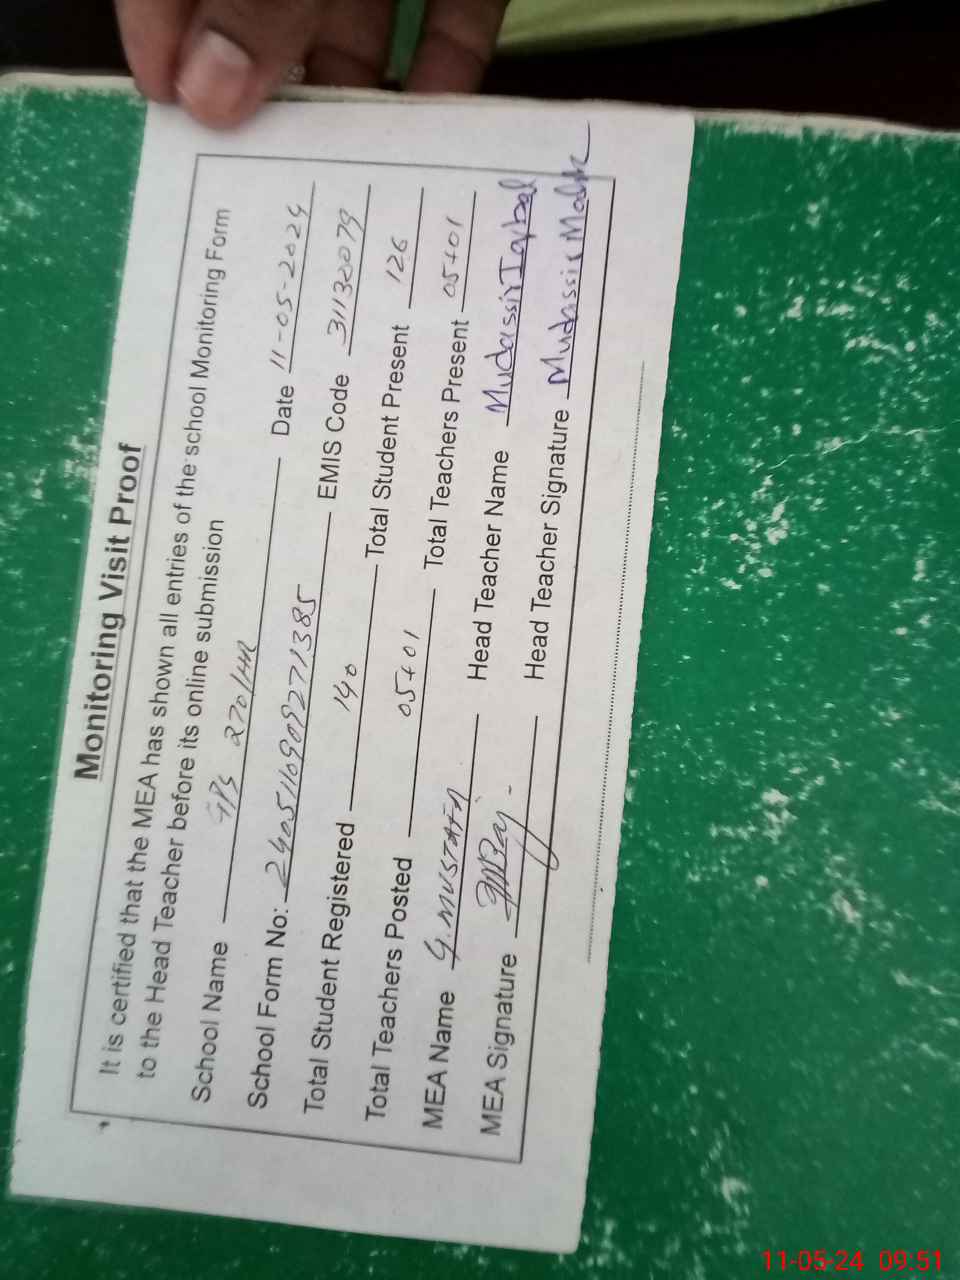 Monitoring Visit Proof
It is certified that the MEA has shown all entries of the school Monitoring Form
to the Head Teacher before its online submission
School Name GPS 270/HR Date 11-05-2024
School Form No: 2405110909271385 EMIS Code 31132079
Total Student Registered 140 Total Student Present 126
Total Teachers Posted 05+01 Total Teachers Present 05+01
MEA Name G. MUSTAFA Head Teacher Name Mudassir Iqbal
MEA Signature Head Teacher Signature Mudassir Malik
11-05-24 09:51